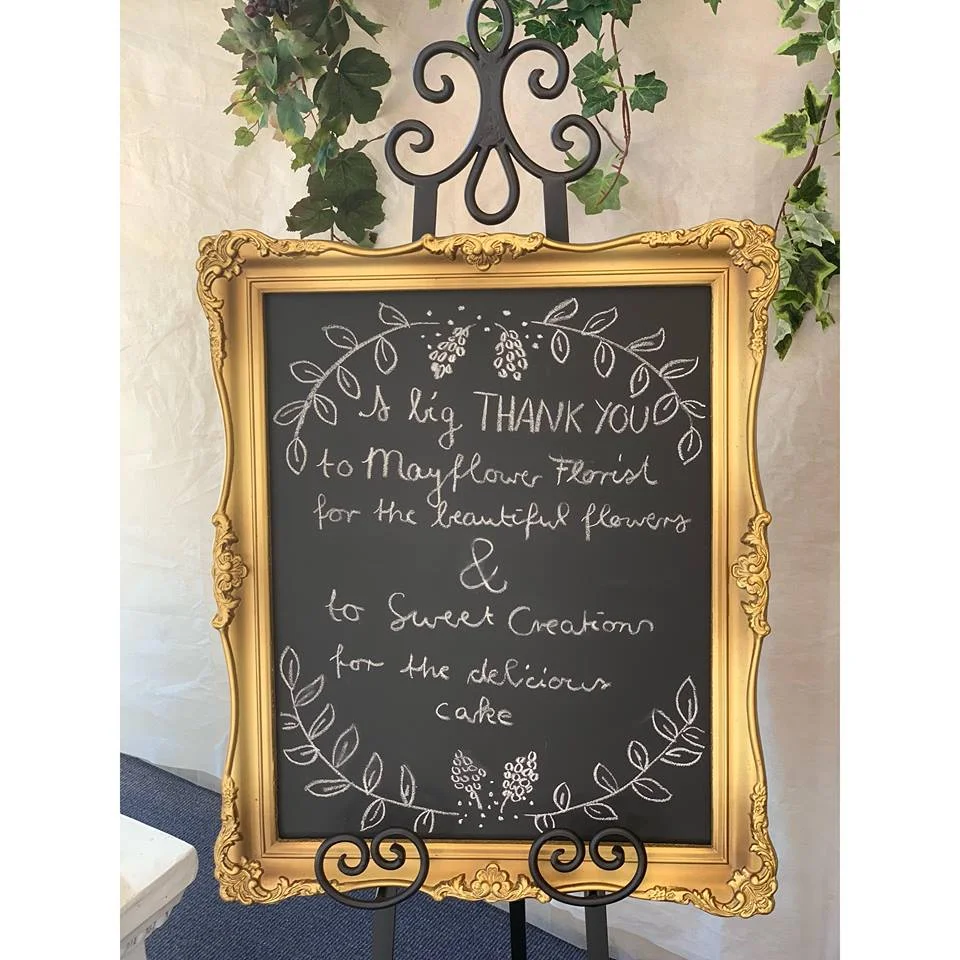 A big THANK YOU
to Mayflower Florist
for the beautiful flowers
&
to Sweet Creations
for the delicious
cake